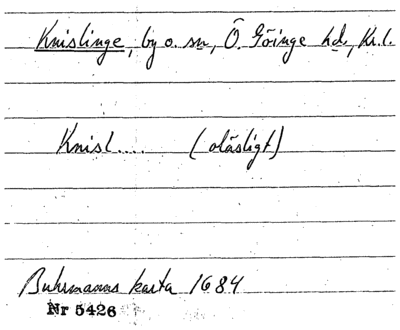 Knislinge, by o. sn, Ö. Göinge hd, Kr. l.
Knisl.... (oläsligt)
Buhrmanns karta 1684
Nr 5426